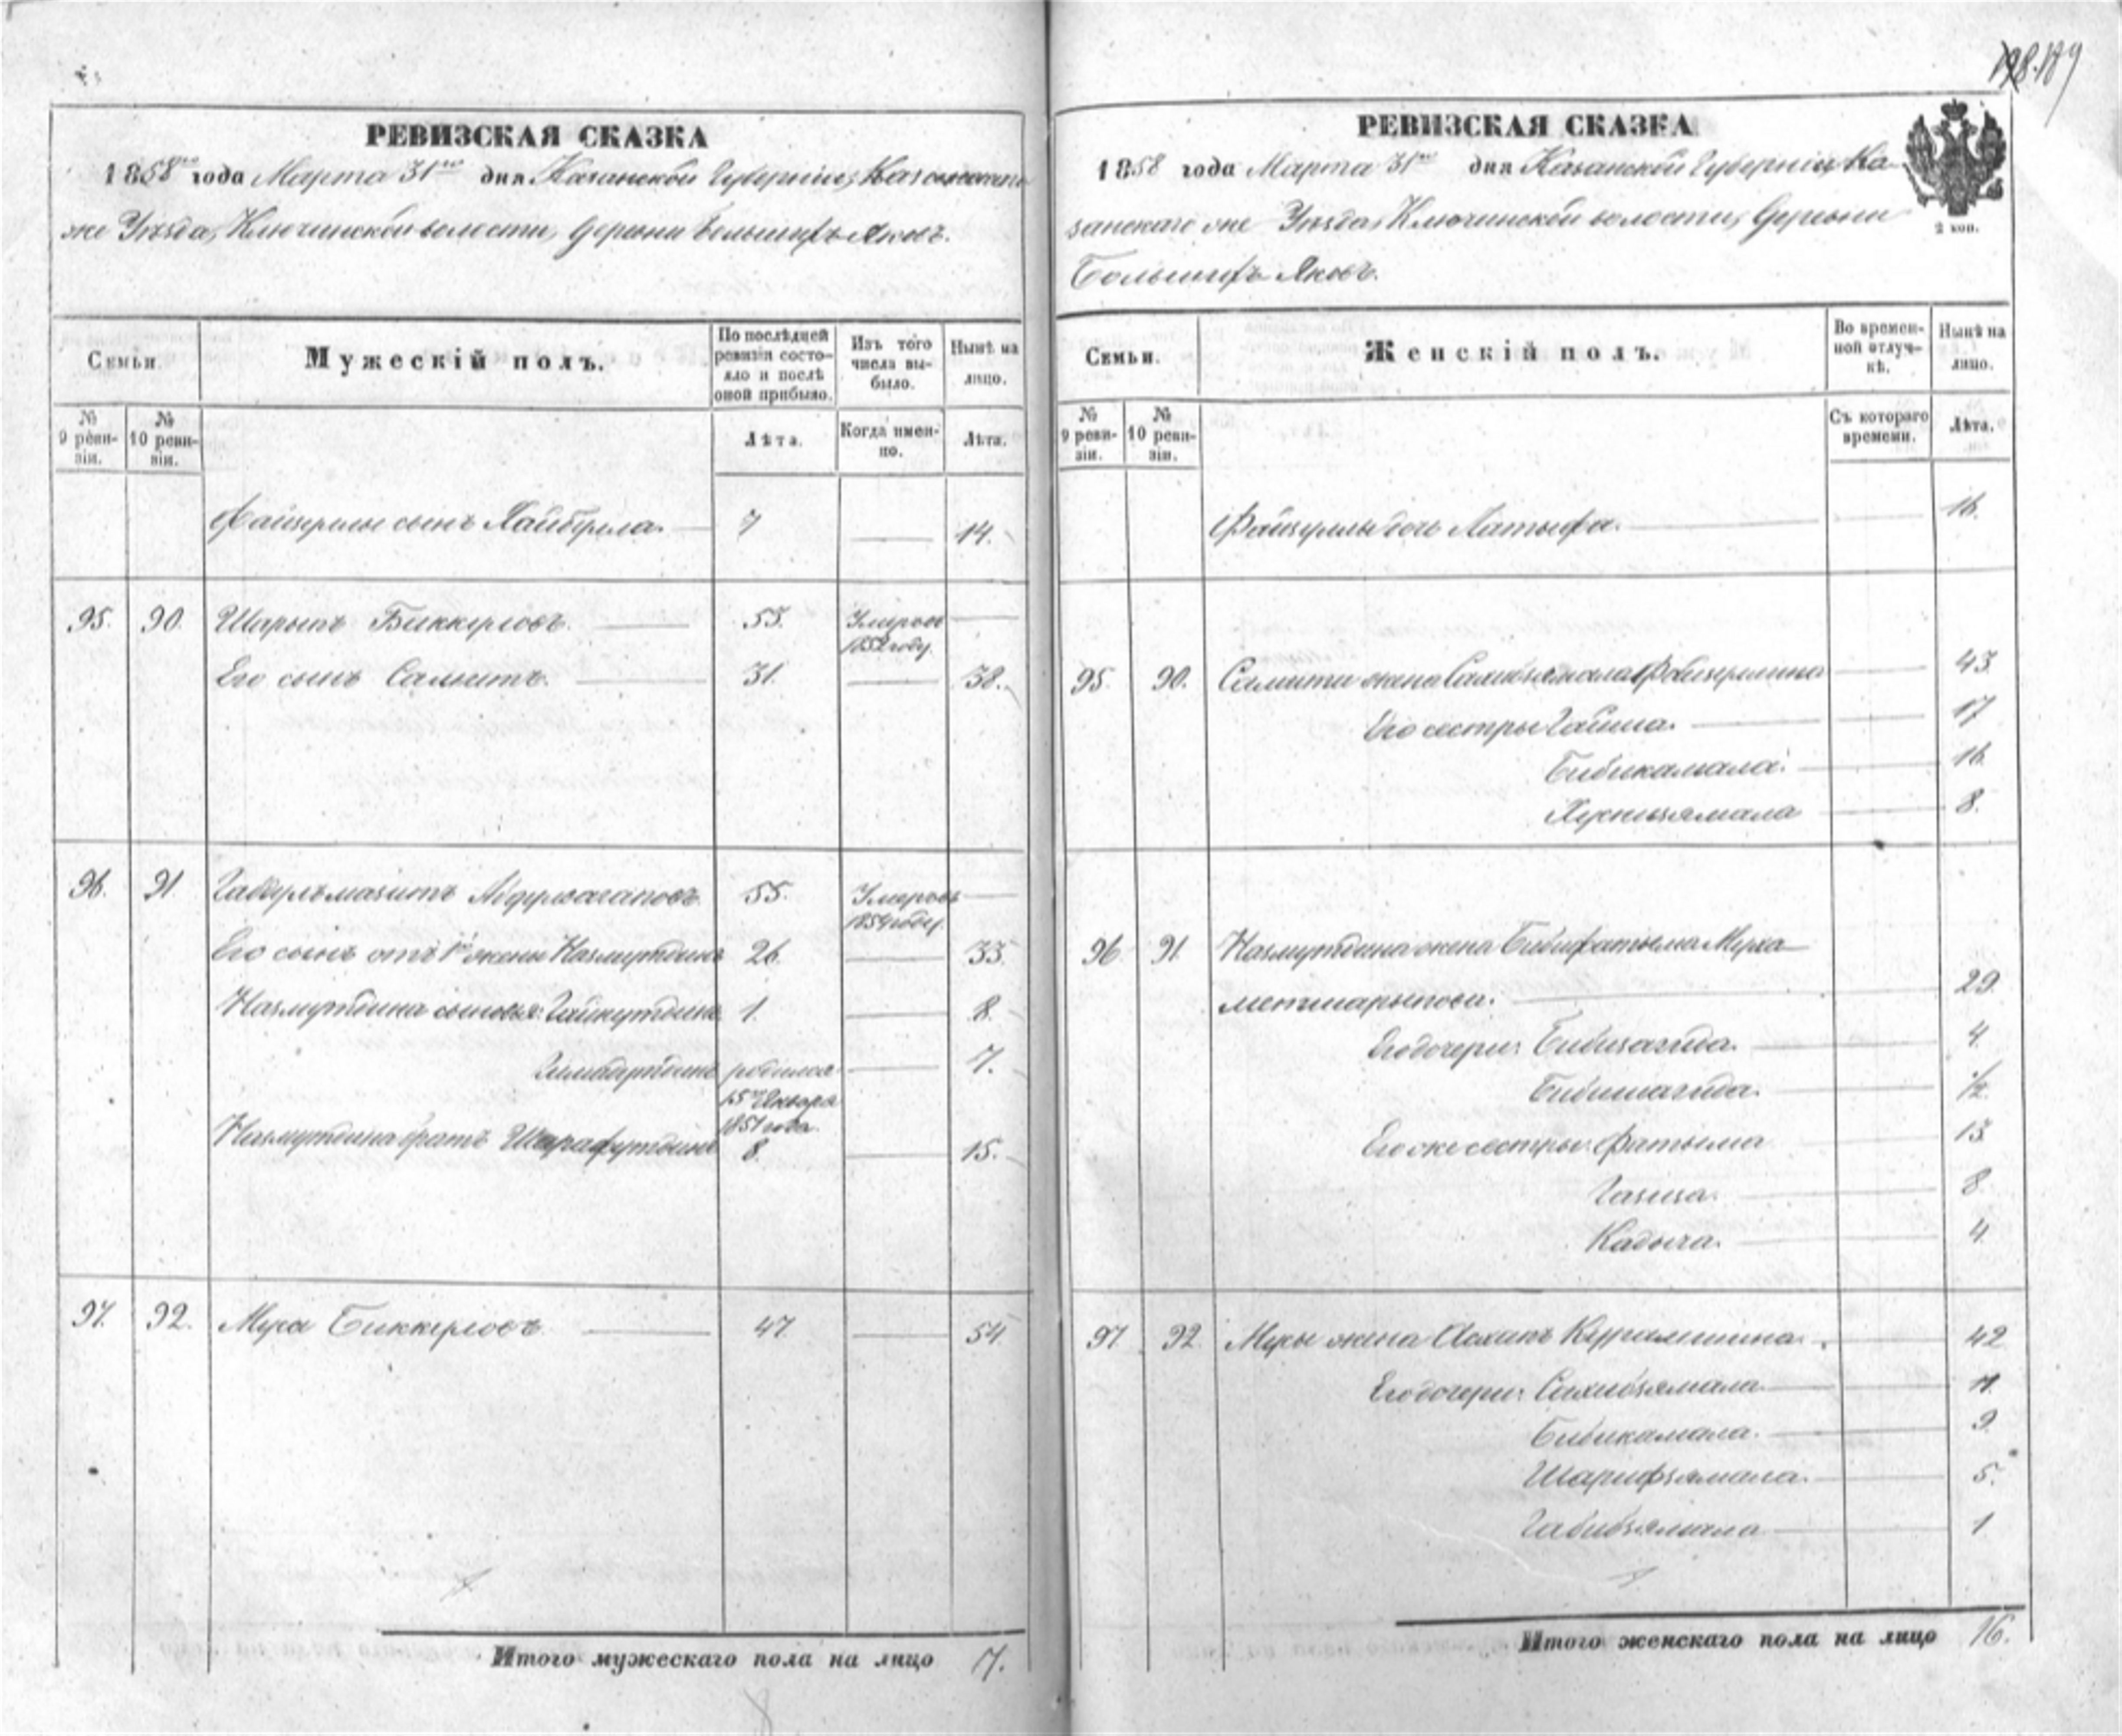 198. 189
РЕВИЗСКАЯ СКАЗКА
1858го года Марта 31го дня. Казанской Губерніи, Казанскаго
же Уѣзда, Ключинской волости, Деревни Большихъ Яковъ.
Семьи.
Мужескій полъ.
По послѣдней ревизіи состояло и послѣ оной прибыло.
Изъ того числа выбыло.
Нынѣ на лицо.
№ 9 ревизіи.
№ 10 ревизіи.
Лѣта.
Когда именно.
Лѣта.
Файзуллы сынъ Хайбулла. 7 14.
95. 90. Шарыпъ Биккуловъ. 53. Умеръ въ 1852 году.
Его сынъ Самитъ. 31. 38.
96. 91. Габдулъмазитъ 55. Умеръ въ 1854 году.
Его сынъ отъ 1й жены Назмутдинъ 26. 33.
Назмутдина сыновья: Гайнутдинъ 1. 8.
родился 7.
15го Января
1851 года.
Назмутдина братъ Шарафутдинъ 8. 15.
97. 92. Муса Биккуловъ 47. 54.
Итого мужескаго пола на лицо 7.
РЕВИЗСКАЯ СКАЗКА
1858 года Марта 31го дня Казанской Губерніи, Ка-
занскаго же Уѣзда, Ключинской волости, Деревни
Большихъ Яковъ.
2 коп.
Семьи.
Женскій полъ.
Во временной отлучкѣ.
Нынѣ на лицо.
№ 9 ревизіи.
№ 10 ревизіи.
Съ котораго времени.
Лѣта.
Файзуллы дочь Латыфа. 16.
95. 90. Самита жена Сахибзямала Файзуллина 43
Его сестры Гайша. 17
Бибикамала. 16.
Хуснизямала 8.
96. 91. Назмутдина жена Бибифатыма Муха-
метшарыпова. 29.
Его дочери: Бибизагида. 4.
Бибишагида. 1/2.
Его же сестры: Фатыма 13.
Газиза. 8
Кадыча. 4
97. 92. Мусы жена Курамшина. 42
Его дочери: Сахибзямала 11.
Бибикамала. 9.
Шарифзямала. 5.
Габибзямала 1
Итого женскаго пола на лицо 16.